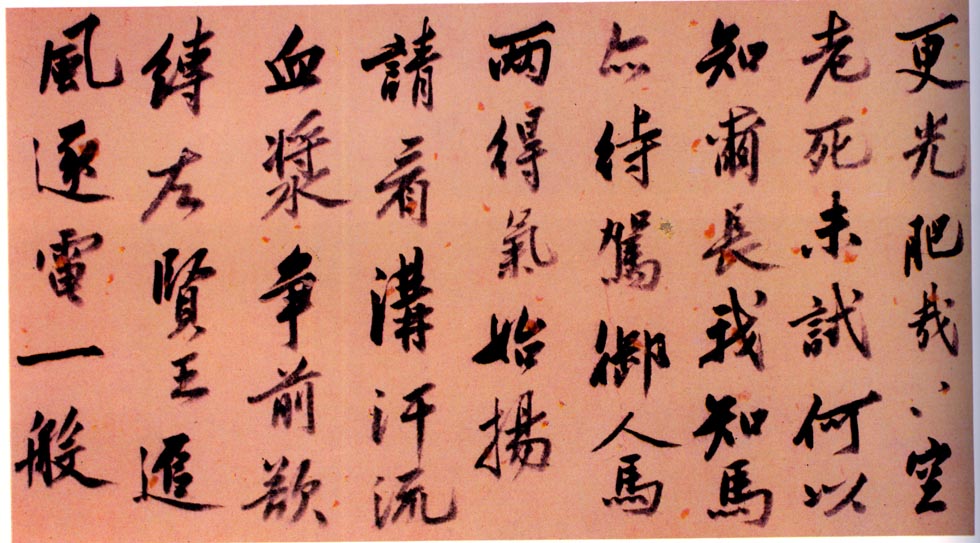 更光肥哉、、空
老死未試何以
知爾長我知馬
亦待駕御人馬
兩得氣始揚
請看溝汗流
血漿爭前欲
縛左賢王追
風逐電一般